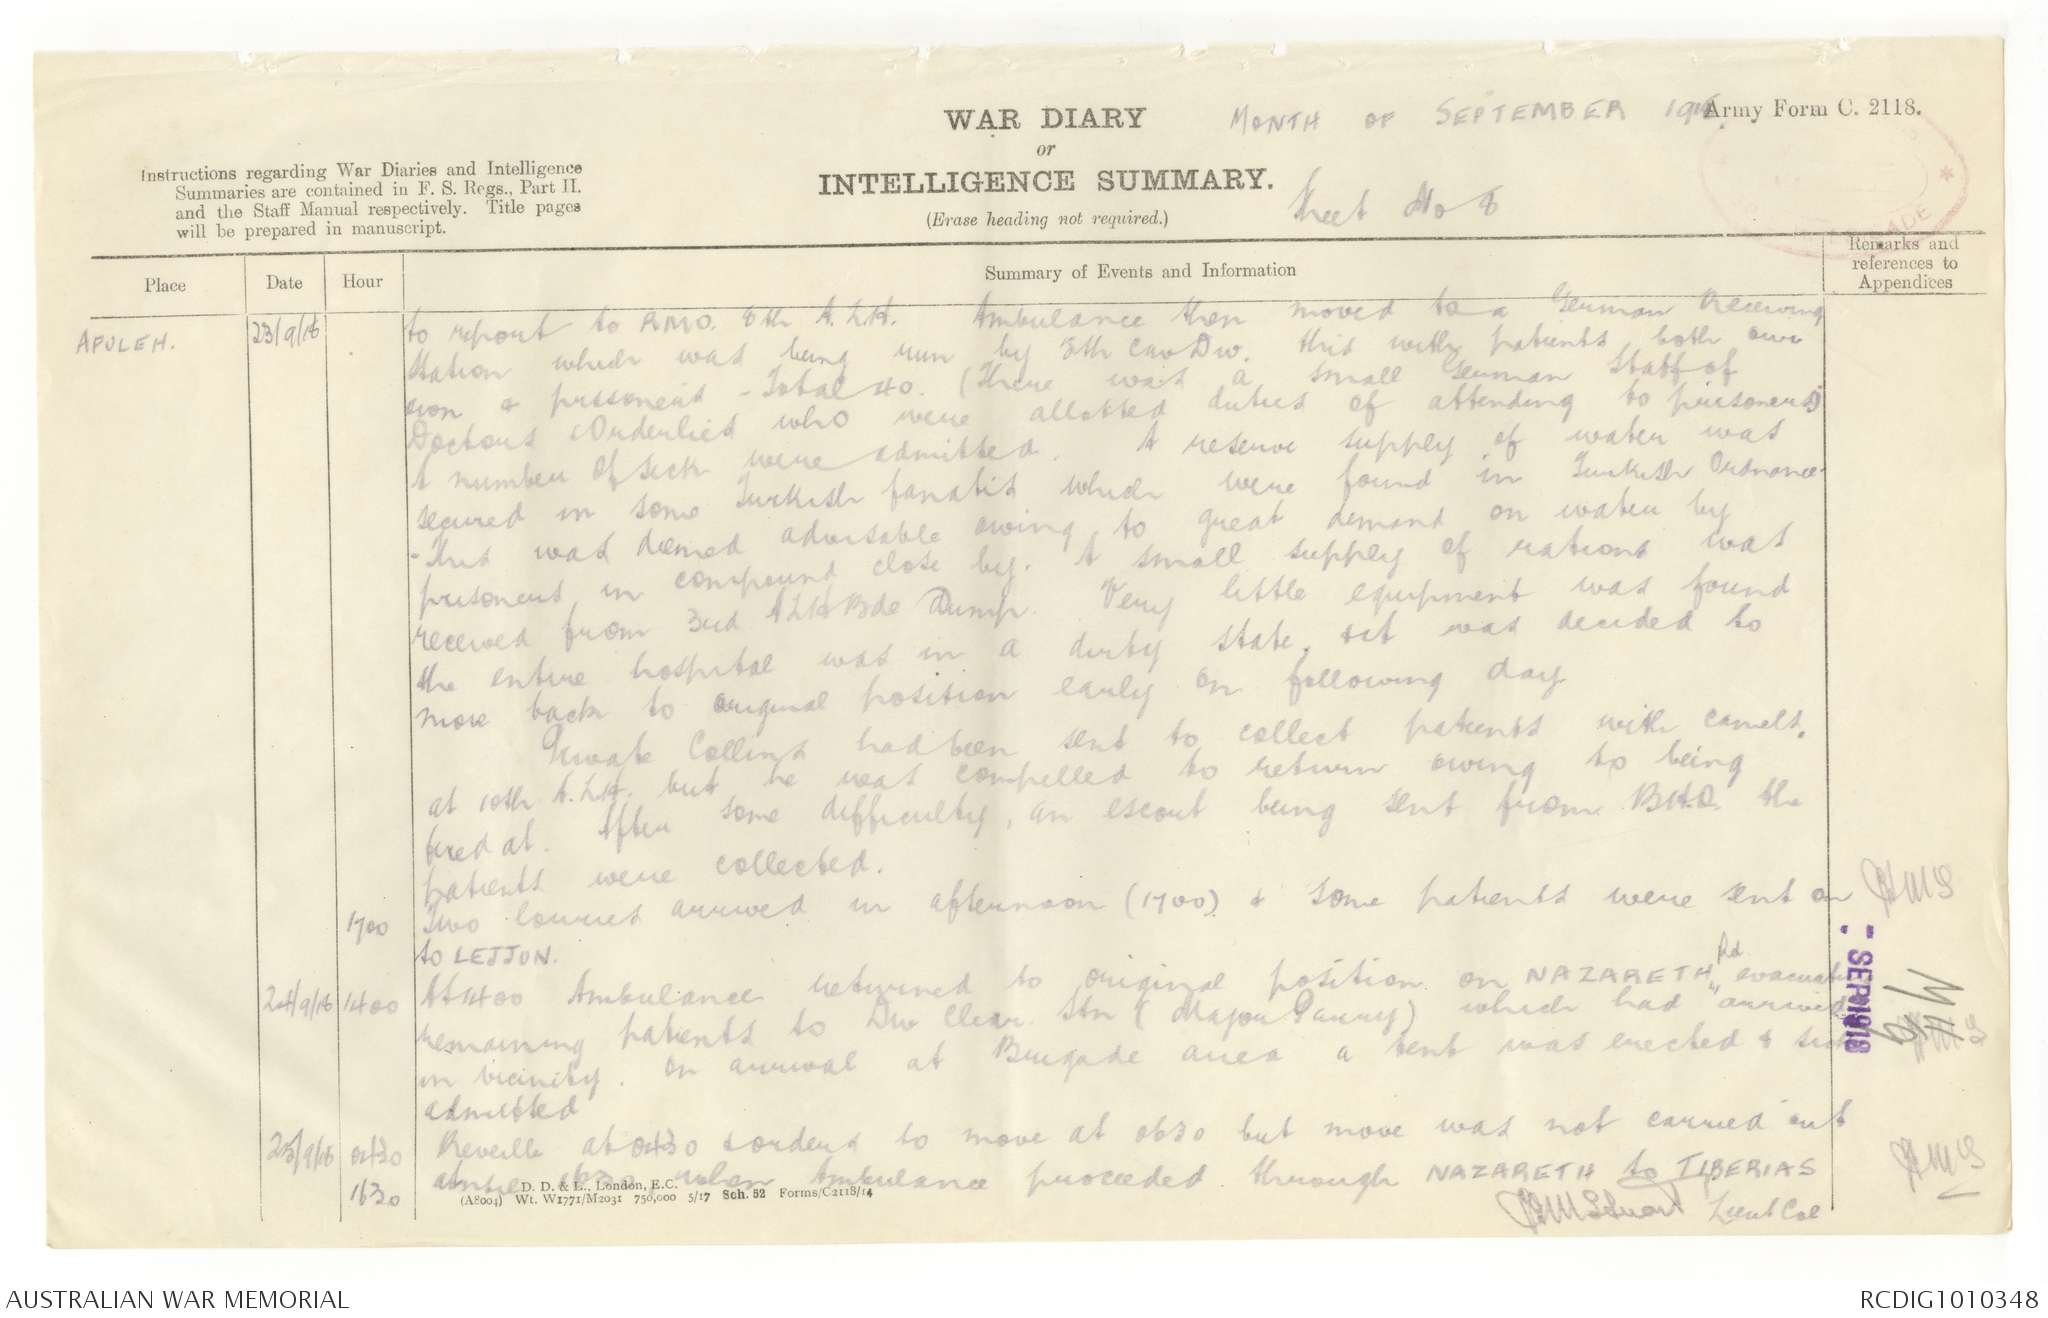 WAR DIARY
or
INTELLIGENCE SUMMARY.
(Erase heading not required.)
MONTH OF SEPTEMBER 1918
Army Form C. 2118.
Sheet No 8
Instructions regarding War Diaries and Intelligence
Summaries are contained in F. S. Regs., Part II.
and the Staff Manual respectively. Title pages
will be prepared in manuscript.
Place
Date
Hour
Summary of Events and Information
Remarks and
references to
Appendices
AFULEH.
23/9/18
to report to RMO. 8th A.L.H. Ambulance then moved to a German Receiving
Station which was being run by 5th Cav Div. this with patients both our
own & prisoners - Total 40. (There was a small German Staff of
Doctors & Orderlies who were allotted duties of attending to prisoners)
A number of sick were admitted. A reserve supply of water was
secured in some Turkish fanatis which were found in Turkish Ordnance
- This was deemed advisable owing to great demand on water by
prisoners in compound close by. A small supply of rations was
received from 3rd ALH Bde Dump. Very little equipment was found
the entire hospital was in a dirty state, & it was decided to
move back to original position early on following day
Private Collins had been sent to collect patients with camels.
at 10th A.L.H. but he was compelled to return owing to being
fired at. After some difficulty, an escort being sent from BHQ the
patients were collected.
1700
Two lorries arrived in afternoon (1700) & some patients were sent on
to LEJJUN.
24/9/18 1400
At 1400 Ambulance returned to original position on NAZARETH Rd. evacuated
remaining patients to Div Clear. Stn (Major Parry) which had arrived
in vicinity. On arrival at Brigade area a tent was erected & sick
admitted
25/9/18 0430
Reveille at 0430 & orders to move at 0630 but move was not carried out
1630
until 1630 when Ambulance proceeded through NAZARETH to TIBERIAS
Lieut Col
SEP 1918
D. D. & L., London, E.C.
(A8004) Wt. W1771/M2031 750,000 5/17 Sch. 52 Forms/C2118/14
AUSTRALIAN WAR MEMORIAL
RCDIG1010348